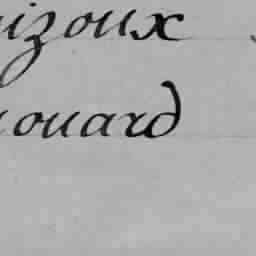 izoux
ouard